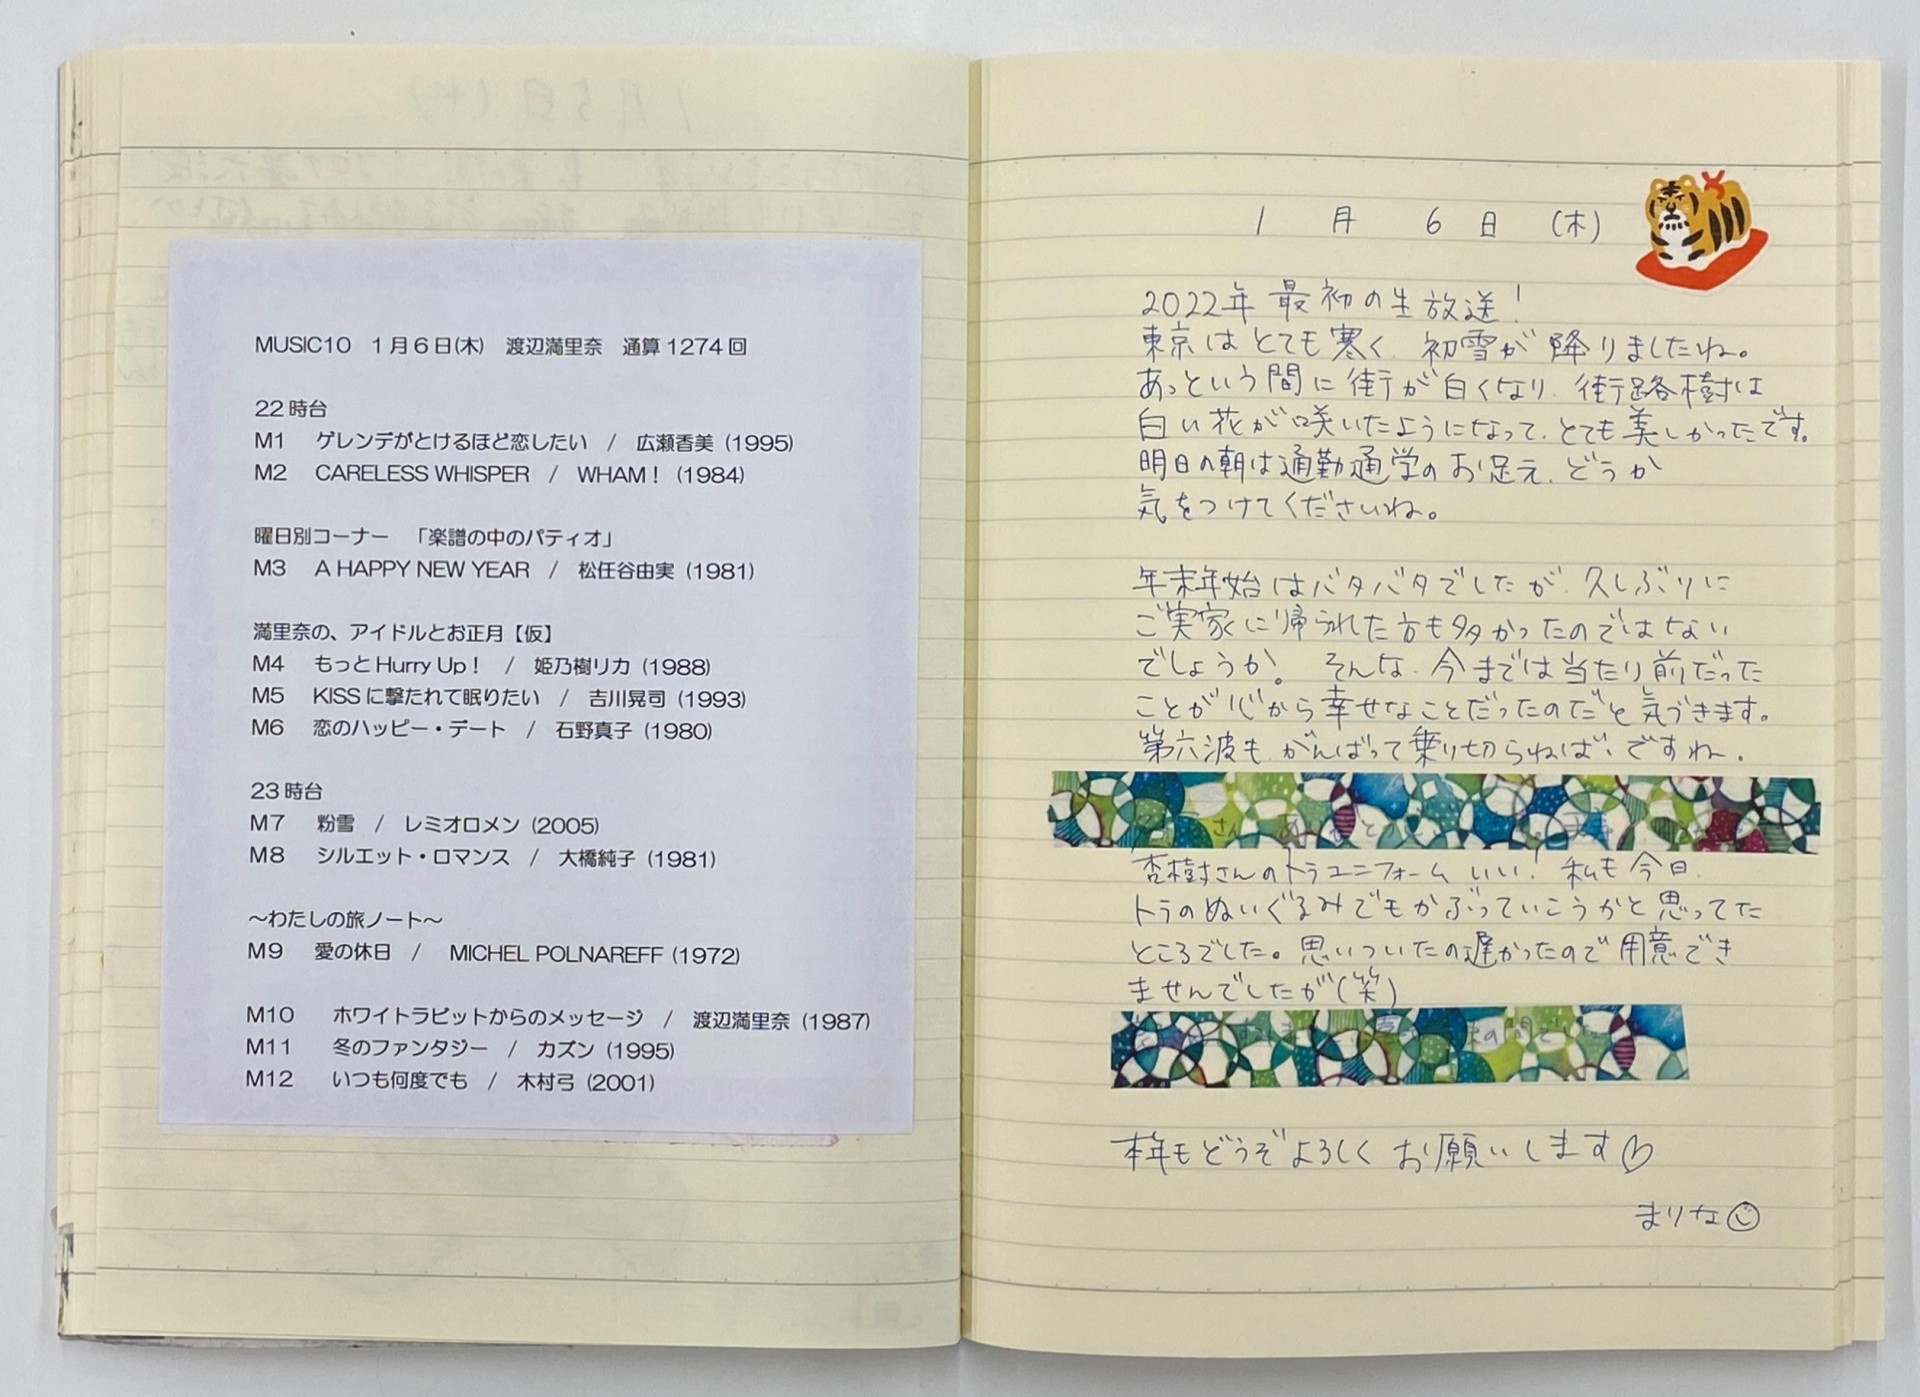 MUSIC10　1月6日(木)　渡辺満里奈　通算1274回
22時台
M1　ゲレンデがとけるほど恋したい　/　広瀬香美 (1995)
M2　CARELESS WHISPER　/　WHAM！ (1984)
曜日別コーナー　「楽譜の中のパティオ」
M3　A HAPPY NEW YEAR　/　松任谷由実 (1981)
満里奈の、アイドルとお正月【仮】
M4　もっとHurry Up！　/　姫乃樹リカ (1988)
M5　KISSに撃たれて眠りたい　/　吉川晃司 (1993)
M6　恋のハッピー・デート　/　石野真子 (1980)
23時台
M7　粉雪　/　レミオロメン (2005)
M8　シルエット・ロマンス　/　大橋純子 (1981)
～わたしの旅ノート～
M9　愛の休日　/　MICHEL POLNAREFF (1972)
M10　ホワイトラビットからのメッセージ　/　渡辺満里奈 (1987)
M11　冬のファンタジー　/　カズン (1995)
M12　いつも何度でも　/　木村弓 (2001)
1月6日(木)
2022年最初の生放送！
東京はとても寒く、初雪が降りましたね。
あっという間に街が白くなり、街路樹は
白い花が咲いたようになって、とても美しかったです。
明日の朝は通勤通学のお足元、どうか
気をつけてくださいね。
年末年始はバタバタでしたが、久しぶりに
ご実家に帰られた方も多かったのではない
でしょうか？そんな、今までは当たり前だった
ことが心から幸せなことだったのだと気づきます。
第六波も、がんばって乗り切らねば、ですね。
杏樹さんのトラユニフォームいい！私も今日、
トラのぬいぐるみでもかぶっていこうかと思ってた
ところでした。思いついたの遅かったので用意でき
ませんでしたが(笑)
本年もどうぞよろしくお願いします♡
まりな☺